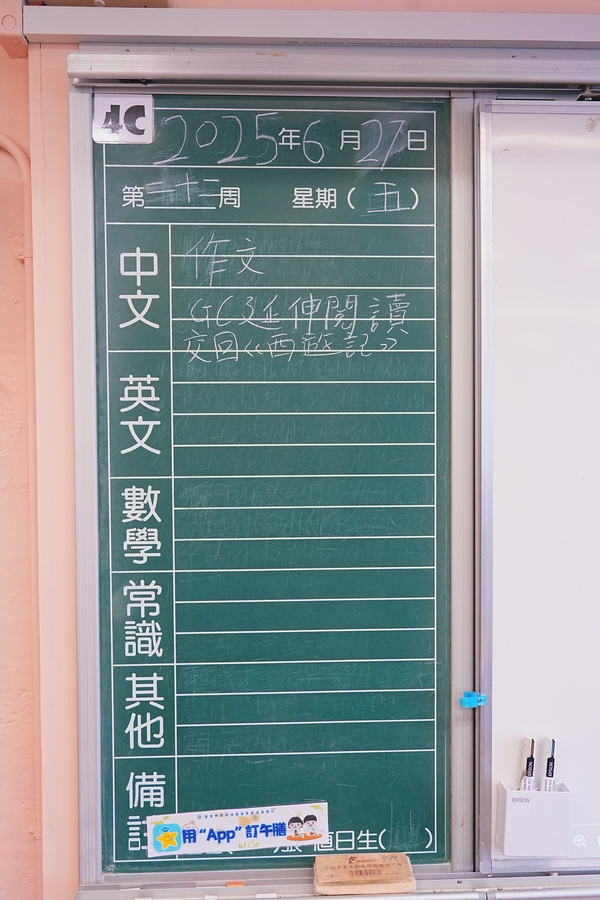 4C
2025年6月27日
第二十二周 星期(五)
中文
作文
GC延伸閱讀
交回《西遊記》
英文
數學
常識
其他
備
用“App”訂午膳
值日生( )
EPSON